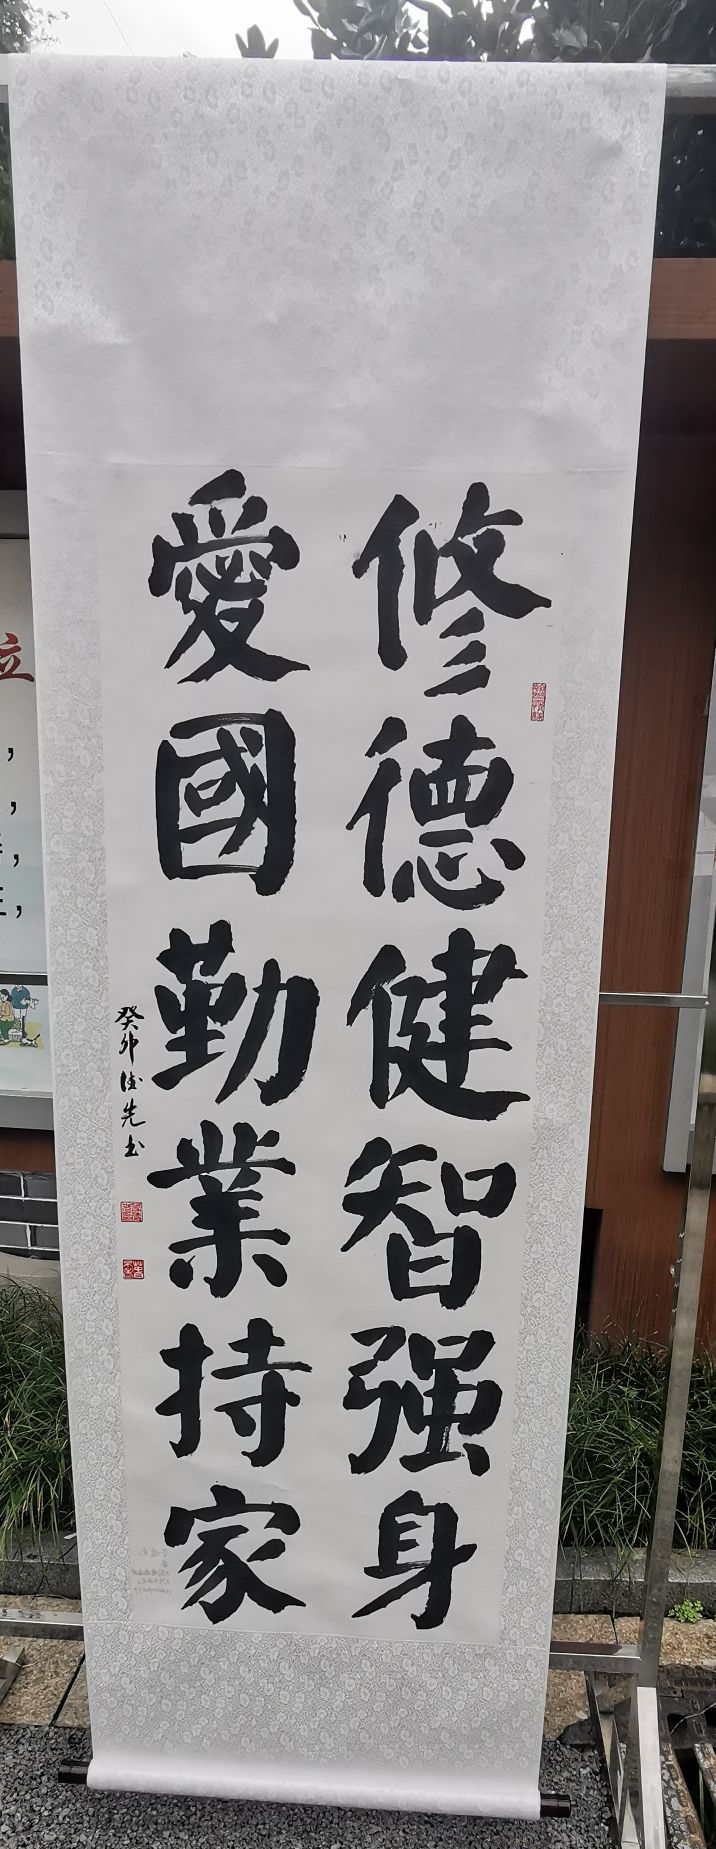 修德健智强身
愛國勤業持家
癸卯德先书
立